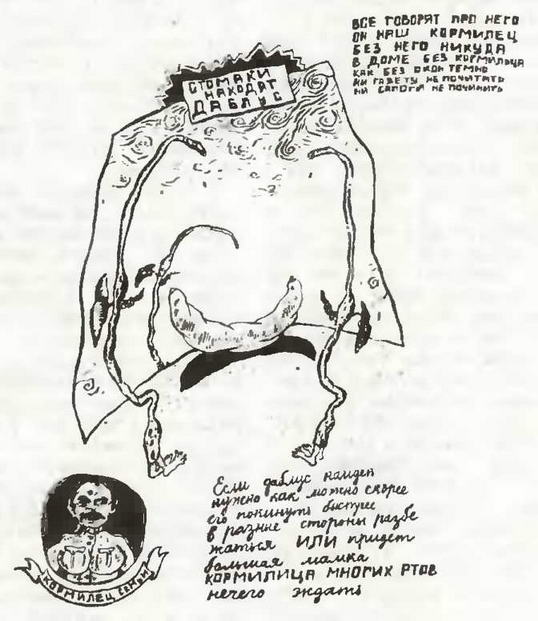 ВСЕ ГОВОРЯТ ПРО НЕГО
ОН НАШ КОРМИЛЕЦ
БЕЗ НЕГО НИКУДА
В ДОМЕ БЕЗ КОРМИЛЬЦА
КАК БЕЗ ОКОН ТЕМНО
НИ ГАЗЕТУ НЕ ПОЧИТАТЬ
НИ САПОГИ НЕ ПОЧИНИТЬ
СТОМАКИ
НАХОДЯТ
ДАБЛУС
Если даблус найден
нужно как можно скорее
его покинуть быстрее
в разние стороны разбе
жаться ИЛИ придет
большая мамка
КОРМИЛИЦА МНОГИХ РТОВ
нечего эждать
КОРМИЛЕЦ СЕМЬИ